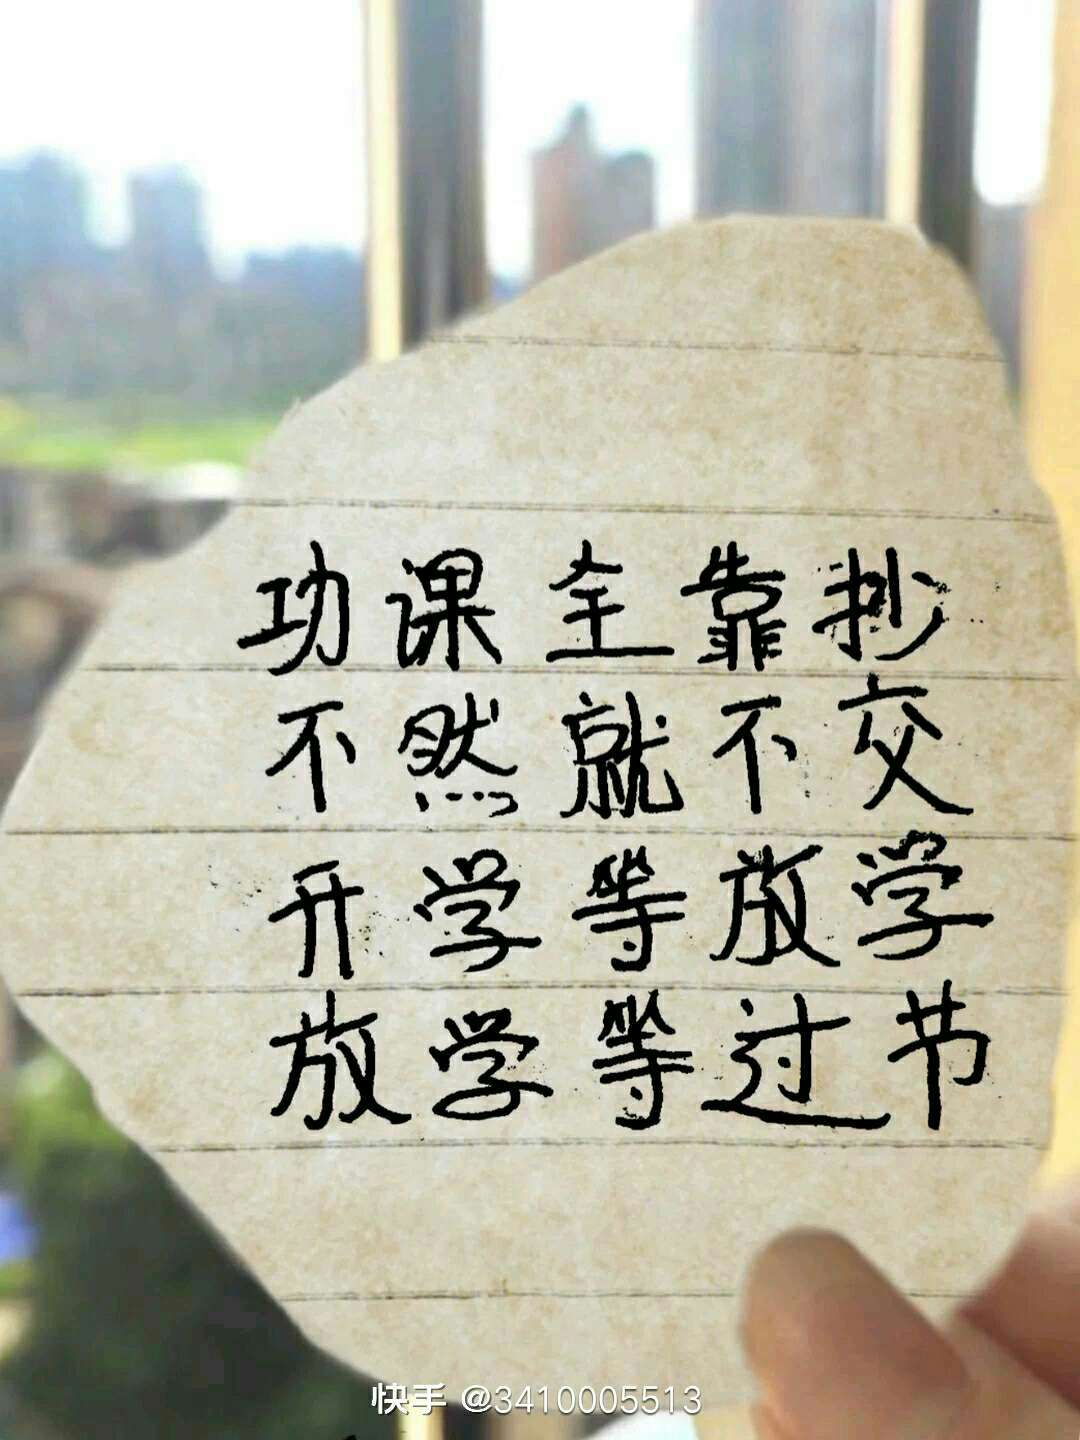 功课全靠抄
不然就不交
开学等放学
放学等过节
快手 @3410005513